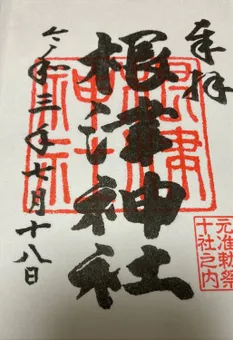 奉拝
根津神社
令和三年七月十八日
元准勅祭
十社之内